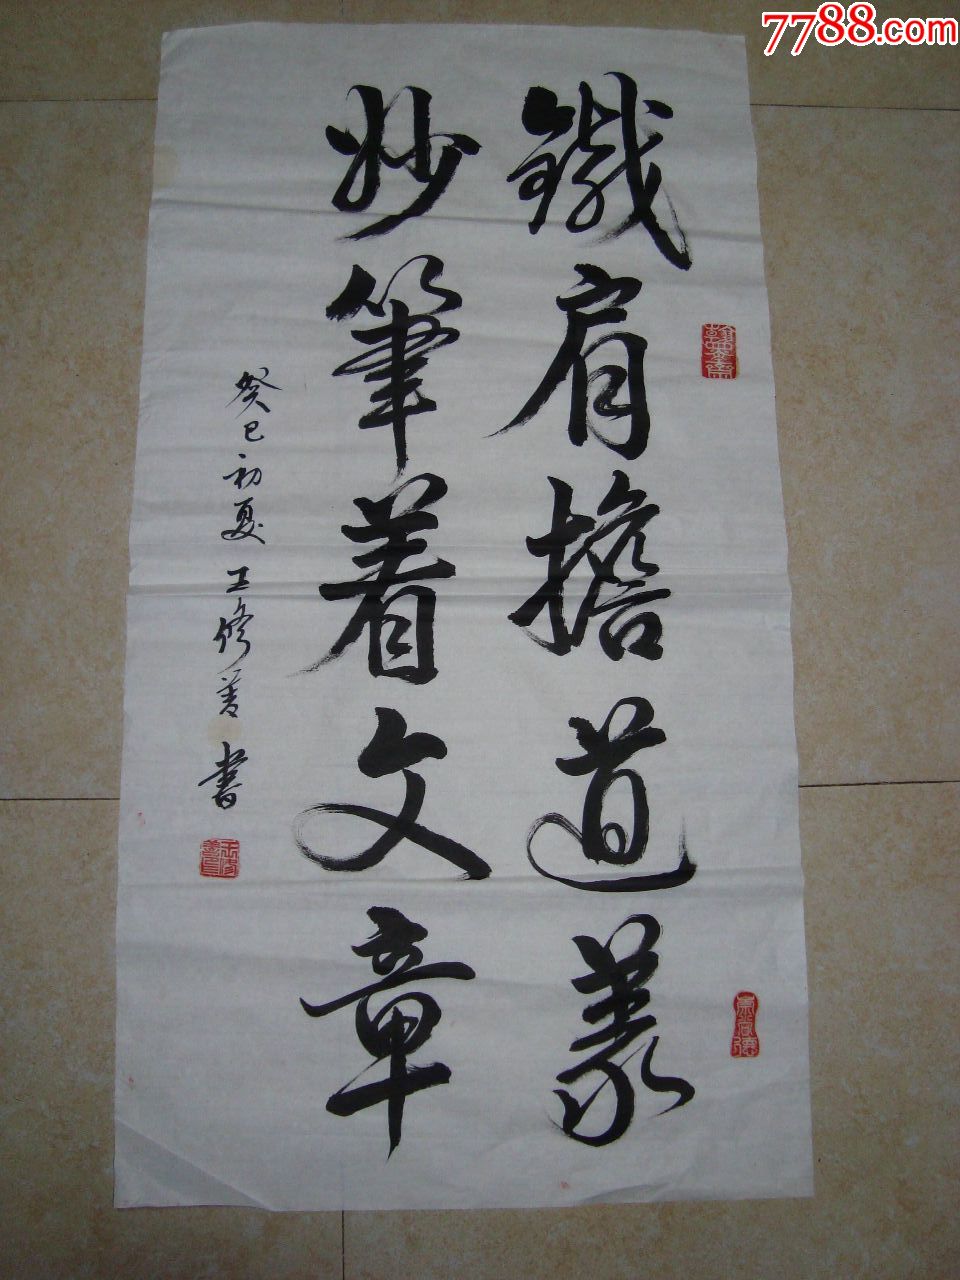 7788.com
鐵肩擔道義
妙筆着文章
癸巳初夏 王修善書